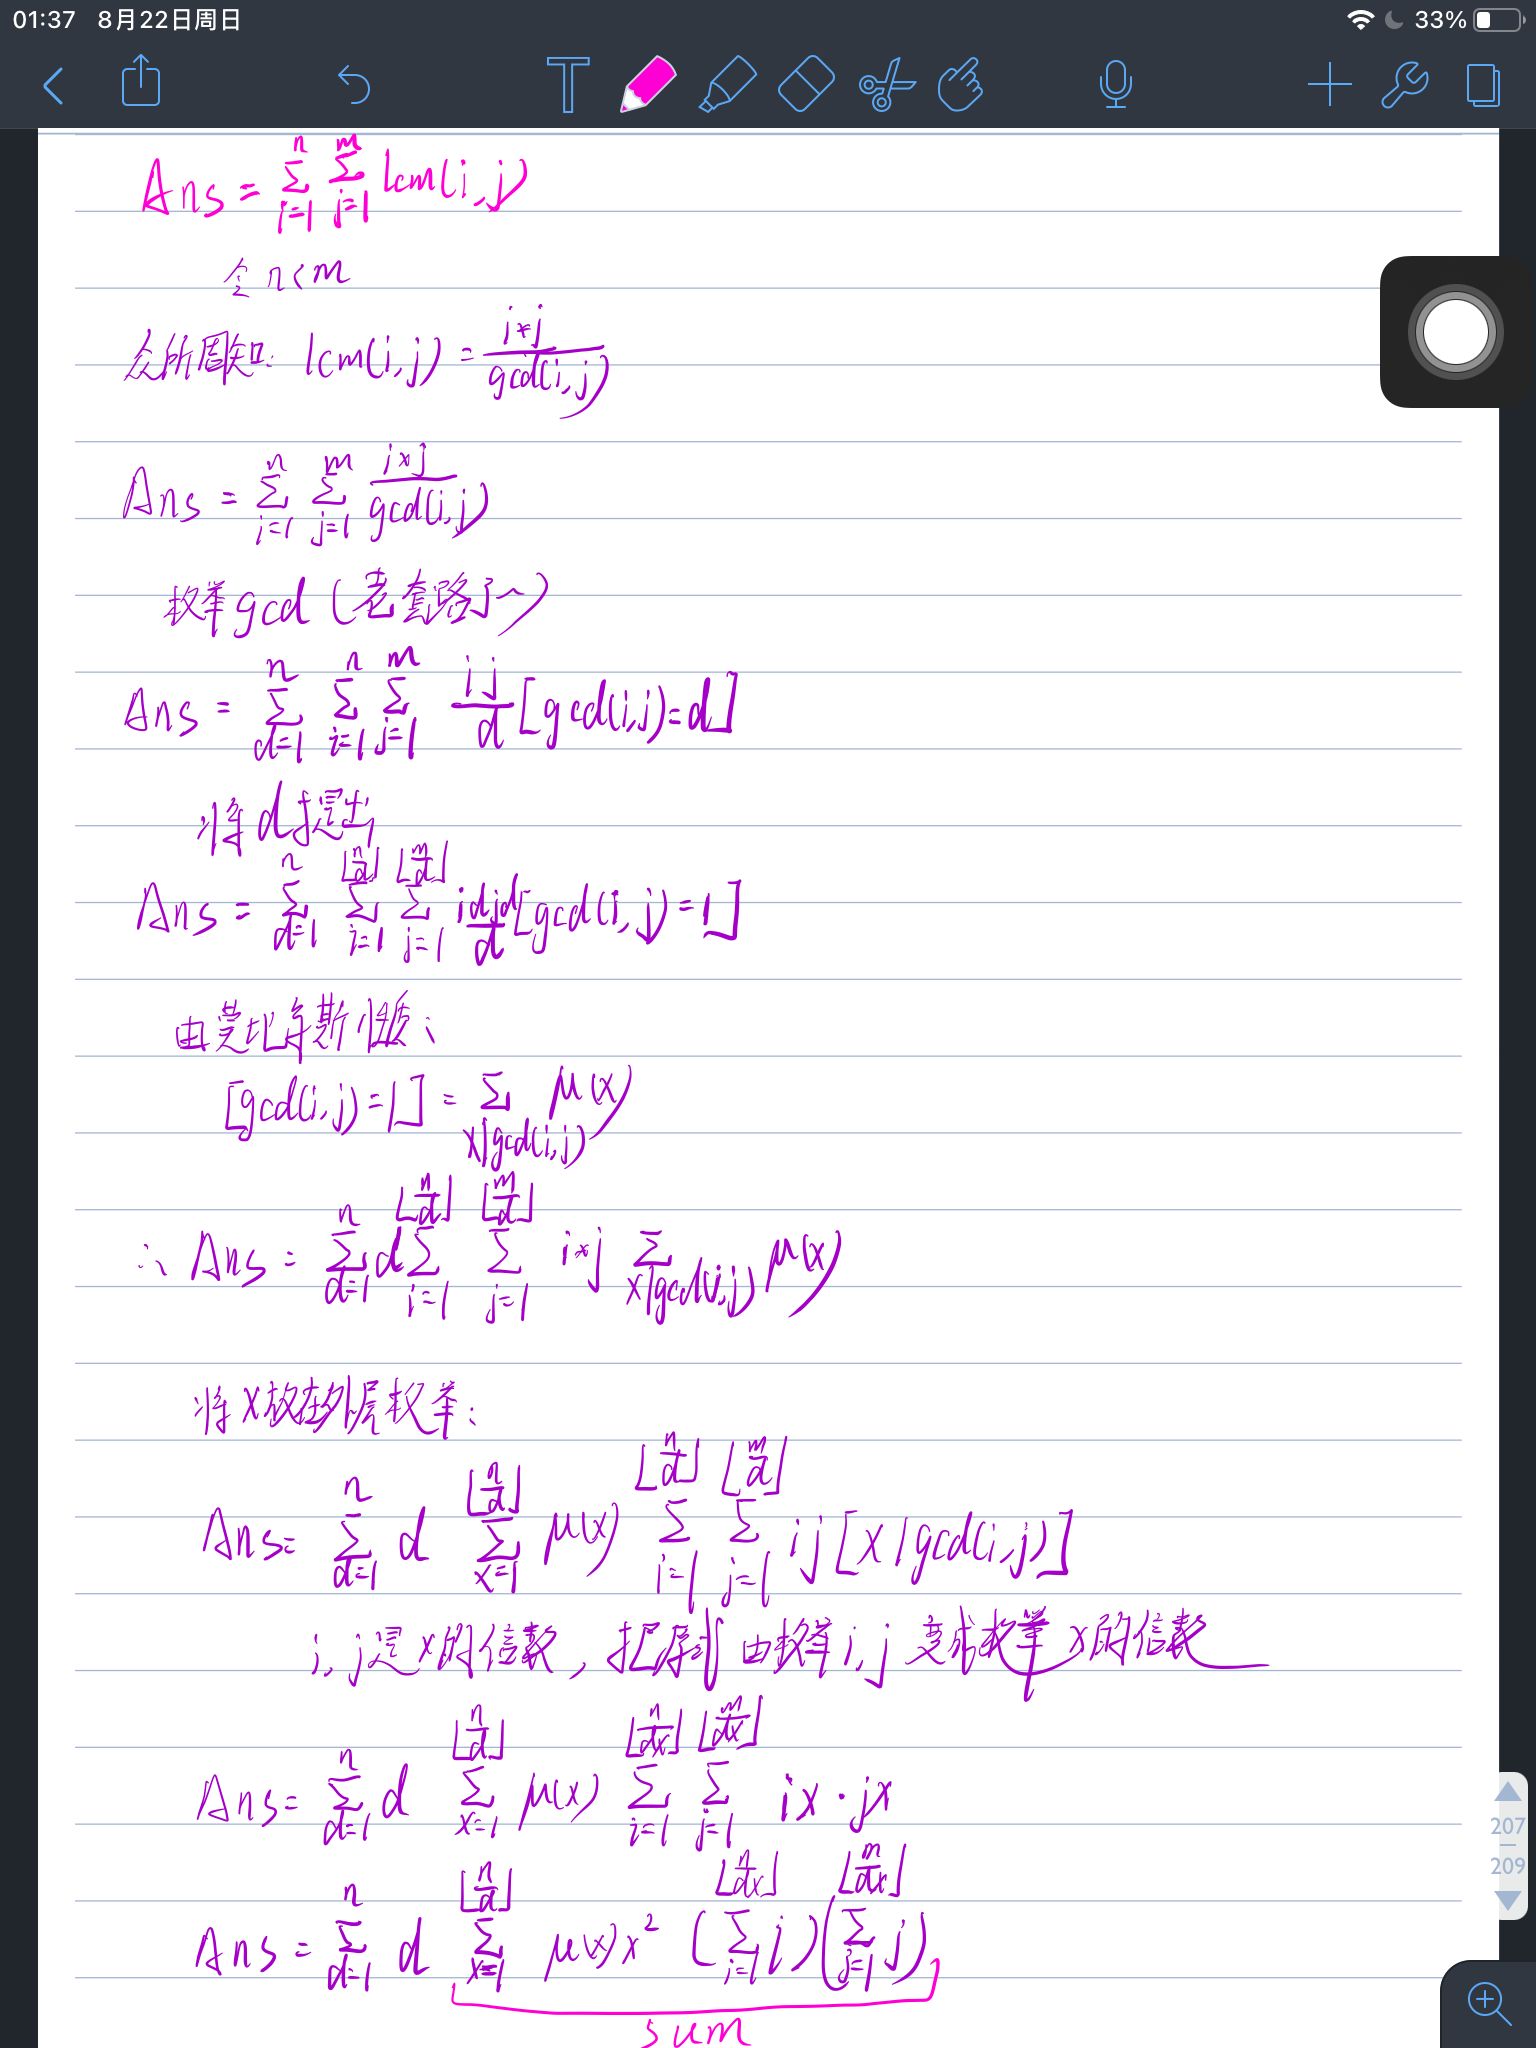 01:37 8月22日周日
33%
T
Ans = \sum_{i=1}^{n} \sum_{j=1}^{m} lcm(i,j)
令 n<m
众所周知: lcm(i,j) = \frac{i*j}{gcd(i,j)}
Ans = \sum_{i=1}^{n} \sum_{j=1}^{m} \frac{i×j}{gcd(i,j)}
枚举gcd (老套路了~)
Ans = \sum_{d=1}^{n} \sum_{i=1}^{n} \sum_{j=1}^{m} \frac{ij}{d} [gcd(i,j)=d]
将d提出
Ans = \sum_{d=1}^{n} \sum_{i=1}^{⌊\frac{n}{d}⌋} \sum_{j=1}^{⌊\frac{m}{d}⌋} \frac{idjd}{d} [gcd(i,j)=1]
由莫比乌斯性质:
[gcd(i,j)=1] = \sum_{x|gcd(i,j)} μ(x)
∴ Ans = \sum_{d=1}^{n} d \sum_{i=1}^{⌊\frac{n}{d}⌋} \sum_{j=1}^{⌊\frac{m}{d}⌋} i*j \sum_{x|gcd(i,j)} μ(x)
将x放在外层枚举:
Ans = \sum_{d=1}^{n} d \sum_{x=1}^{⌊\frac{n}{d}⌋} μ(x) \sum_{i=1}^{⌊\frac{n}{d}⌋} \sum_{j=1}^{⌊\frac{m}{d}⌋} ij [x|gcd(i,j)]
i,j是x的倍数, 把原式由枚举i,j变成枚举x的倍数
Ans = \sum_{d=1}^{n} d \sum_{x=1}^{⌊\frac{n}{d}⌋} μ(x) \sum_{i=1}^{⌊\frac{n}{dx}⌋} \sum_{j=1}^{⌊\frac{m}{dx}⌋} ix·jx
Ans = \sum_{d=1}^{n} d \sum_{x=1}^{⌊\frac{n}{d}⌋} μ(x)x^2 (\sum_{i=1}^{⌊\frac{n}{dx}⌋} i)(\sum_{j=1}^{⌊\frac{m}{dx}⌋} j)
sum
207
209